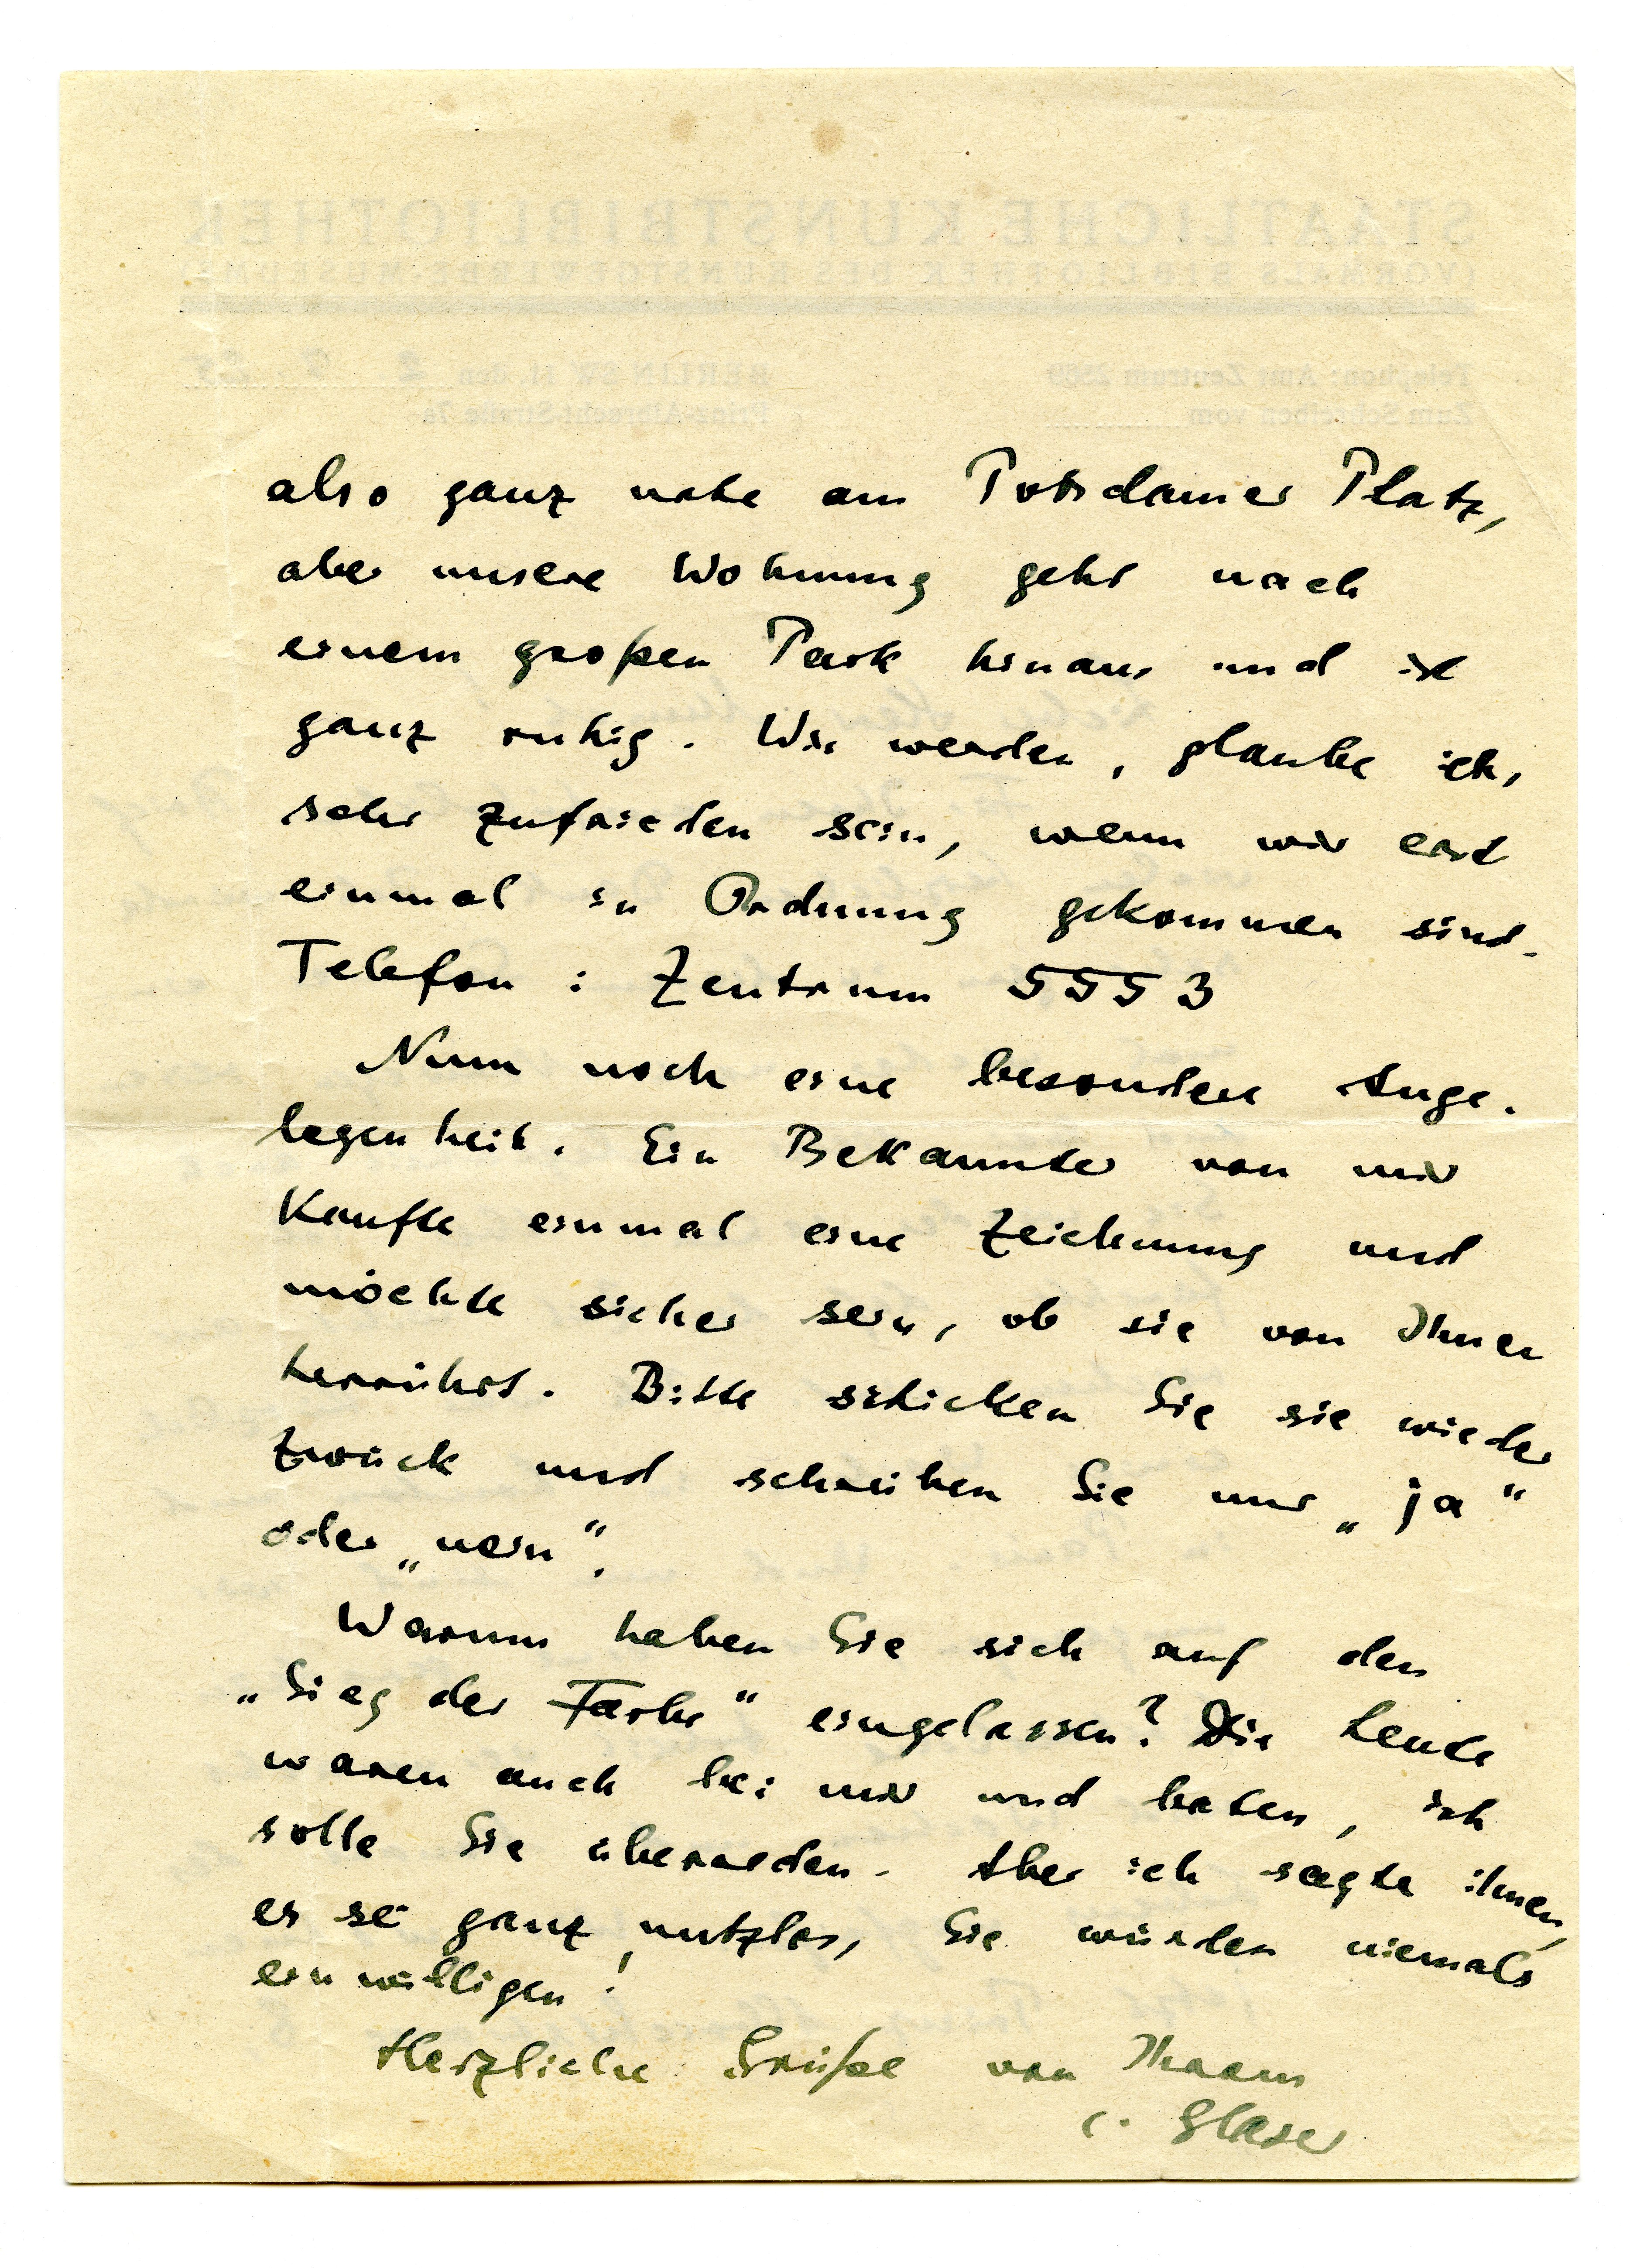 also ganz nahe am Potsdamer Platz,
aber unsere Wohnung geht nach
einem großen Park hinaus und ist
ganz ruhig. Wir werden, glaube ich,
sehr zufrieden sein, wenn wir erst
einmal in Ordnung gekommen sind.
Telefon: Zentrum 5553
Nun noch eine besondere Ange-
legenheit. Ein Bekannter von mir
kaufte einmal eine Zeichnung und
möchte sicher sein, ob sie von Ihnen
herrührt. Bitte schicken Sie sie wieder
zurück und schreiben Sie nur „ja“
oder „nein“.
Warum haben Sie sich auf den
„Sieg der Farbe“ eingelassen? Die Leute
waren auch bei mir und baten, ich
solle Sie überreden. Aber ich sagte ihnen,
es sei ganz nutzlos, Sie würden niemals
einwilligen!
Herzliche Grüße von Ihrem
C. Glaser